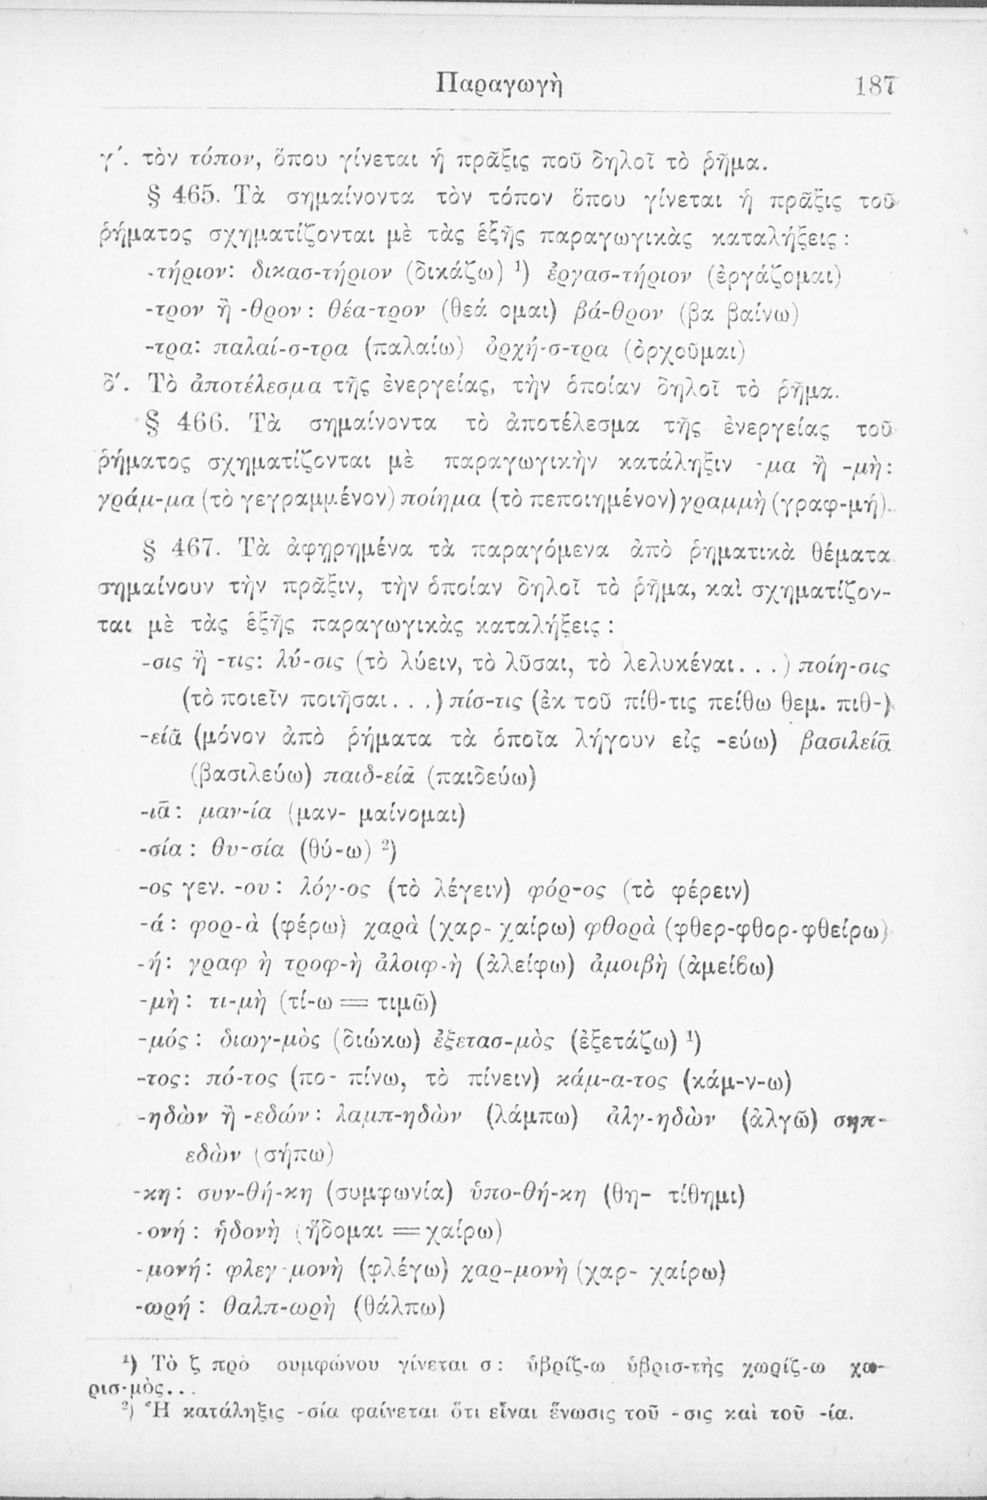 Παραγωγὴ 187
γʹ. τὸν τόπον, ὅπου γίνεται ἡ πρᾶξις ποῦ δηλοῖ τὸ ῥῆμα.
§ 465. Τὰ σημαίνοντα τὸν τόπον ὅπου γίνεται ἡ πρᾶξις τοῦ
ῥήματος σχηματίζονται μὲ τὰς ἑξῆς παραγωγικὰς καταλήξεις :
-τήριον: δικασ-τήριον (δικάζω) ¹) ἐργασ-τήριον (ἐργάζομαι)
-τρον ἢ -θρον : θέα-τρον (θεά ομαι) βά-θρον (βα βαίνω)
-τρα: παλαί-σ-τρα (παλαίω) ὀρχή-σ-τρα (ὀρχοῦμαι)
δʹ. Τὸ ἀποτέλεσμα τῆς ἐνεργείας, τὴν ὁποίαν δηλοῖ τὸ ῥῆμα.
§ 466. Τὰ σημαίνοντα τὸ ἀποτέλεσμα τῆς ἐνεργείας τοῦ
ῥήματος σχηματίζονται μὲ παραγωγικὴν κατάληξιν -μα ἢ -μὴ :
γράμ-μα (τὸ γεγραμμένον) ποίημα (τὸ πεποιημένον) γραμμὴ (γραφ-μή).
§ 467. Τὰ ἀφῃρημένα τὰ παραγόμενα ἀπὸ ῥηματικὰ θέματα
σημαίνουν τὴν πρᾶξιν, τὴν ὁποίαν δηλοῖ τὸ ῥῆμα, καὶ σχηματίζον-
ται μὲ τὰς ἑξῆς παραγωγικὰς καταλήξεις :
-σις ἢ -τις: λύ-σις (τὸ λύειν, τὸ λῦσαι, τὸ λελυκέναι. . .) ποίη-σις
(τὸ ποιεῖν ποιῆσαι. . .) πίσ-τις (ἐκ τοῦ πίθ-τις πείθω θεμ. πιθ-)
-είᾱ (μόνον ἀπὸ ῥήματα τὰ ὁποῖα λήγουν εἰς -εύω) βασιλείᾱ
(βασιλεύω) παιδ-είᾱ (παιδεύω)
-ιᾱ : μαν-ία (μαν- μαίνομαι)
-σία : θυ-σία (θύ-ω) ²)
-ος γεν. -ου : λόγ-ος (τὸ λέγειν) φόρ-ος (τὸ φέρειν)
-ά : φορ-ὰ (φέρω) χαρὰ (χαρ- χαίρω) φθορὰ (φθερ-φθορ-φθείρω)
-ή : γραφ ὴ τροφ-ὴ ἀλοιφ-ὴ (ἀλείφω) ἀμοιβὴ (ἀμείβω)
-μὴ : τι-μὴ (τί-ω = τιμῶ)
-μός : διωγ-μὸς (διώκω) ἐξετασ-μὸς (ἐξετάζω) ¹)
-τος: πό-τος (πο- πίνω, τὸ πίνειν) κάμ-α-τος (κάμ-ν-ω)
-ηδὼν ἢ -εδών : λαμπ-ηδὼν (λάμπω) ἀλγ-ηδὼν (ἀλγῶ) σηπ-
εδὼν (σήπω)
-κη : συν-θή-κη (συμφωνία) ὑπο-θή-κη (θη- τίθημι)
-ονή : ἡδονὴ (ἥδομαι = χαίρω)
-μονή : φλεγ-μονὴ (φλέγω) χαρ-μονὴ (χαρ- χαίρω)
-ωρή : θαλπ-ωρὴ (θάλπω)
¹) Τὸ ζ πρὸ συμφώνου γίνεται σ : ὑβρίζ-ω ὑβρισ-τὴς χωρίζ-ω χω-
ρισ-μὸς. . .
²) Ἡ κατάληξις -σία φαίνεται ὅτι εἶναι ἕνωσις τοῦ -σις καὶ τοῦ -ία.